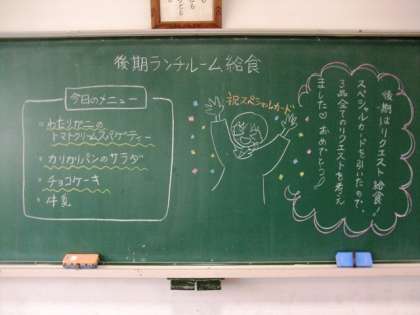 後期ランチルーム給食
今日のメニュー
・わたりがニの
トマトクリームスパゲティー
・カリカリパンのサラダ
・チョコケーキ
・牛乳
祝スペシャルカード
後期はリクエスト給食!
スペシャルカードを引いたので、
3品全てのリクエストを考え
ました♡おめでとう♪